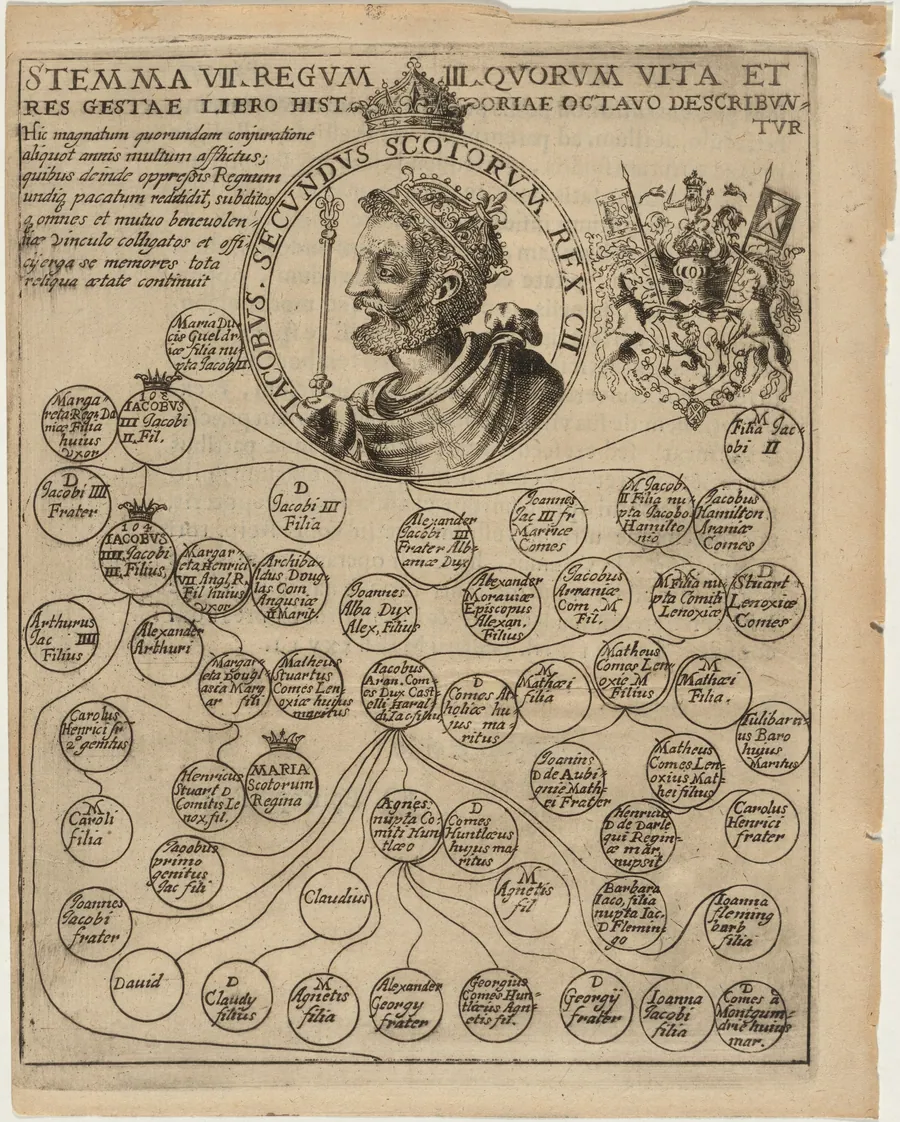 STEMMA VII. REGVM III. QVORVM VITA ET
RES GESTAE LIBRO HISTORIAE OCTAVO DESCRIBVN=
TVR
Hic magnatum quorundam coniuratione
aliquot annis multum afflictus;
quibus deinde oppreßis Regnum
undiq pacatum reddidit, subditos
q omnes et mutuo beneuolen-
tiæ vinculo colligatos et offi-
cij erga se memores tota
reliqua ætate continuit
IACOBVS. SECVNDVS SCOTORVM REX CII
Maria Du
cis Gueldr
iæ filia nu
pta Jacob II.
Marga=
reta Reg. Da
niæ Filia
huius
vxor
103
IACOBVS
III Jacobi
II. Fil.
M
Filia Jac=
obi II
D
Jacobi IIII
Frater
D
Jacobi III
Filia
Alexander
Jacobi III
Frater Alb-
aniæ Dux
Joannes
Jac III fr
Marriæ
Comes
M Jacob
II Filia nu=
pta Jacobo
Hamilto
nio
Jacobus
Hamilton
Araniæ
Comes
104
IACOBVS
IIII Jacobi
III. Filius
Margar=
eta Henrici
VII Angl. R.
Fil huius
vxor
Archiba=
ldus Doug=
las Com
Angusiæ
Marit.
Joannes
Alba Dux
Alex, Filius
Alexander
Morauiæ
Episcopus
Alexan.
Filius
Jacobus
Arraniæ
Com M
Fil.
M Filia nu=
pta Comiti
Lenoxiæ
D
Stuart
Lenoxiæ
Comes
Arthurus
Jac IIII
Filius
Alexander
Arthuri
Margar=
eta Dougl=
asia Marg
ar fili
Matheus
Stuartus
Comes Len=
oxiæ huius
maritus
Iacobus
Aran. Com=
es Dux Cast=
elli Haral
di Iac filius
D
Comes At=
holiæ hu=
jus ma=
ritus
M
Mathæi
filia
Matheus
Comes Len=
oxiæ M
Filius
M
Mathæi
Filia.
Carolus
Henrici fr
2 genitus
Tulibarn=
us Baro
hujus
Maritus
Henricus
Stuart D
Comitis Le
nox, fil.
MARIA
Scotorum
Regina
Joannis
D de Aubi=
gnie Math=
ei Frater
Matheus
Comes Len=
oxius Mat=
hei filius
M
Caroli
filia
Agnes
nupta Co=
miti Hun
tlæo
D
Comes
Huntlæus
hujus ma=
ritus
Henricus
D de Darle
qui Regin=
æ mar,
nupsit
Carolus
Henrici
frater
Jacobus
primo
genitus
Jac fili
Claudius
M
Agnetis
fil
Barbara
Iaco, filia
nupta Iac.
D Flemin=
go
Ioanna
fleming
barb
filia
Joannes
Jacobi
frater
David
D
Claudy
filius
M
Agnetis
filia
Alexander
Georgy
frater
Georgius
Comes Hun=
tlæus Agn=
etis fil.
D
Georgij
frater
Ioanna
Jacobi
filia
D
Comes a
Montgum=
drie huius
mar.